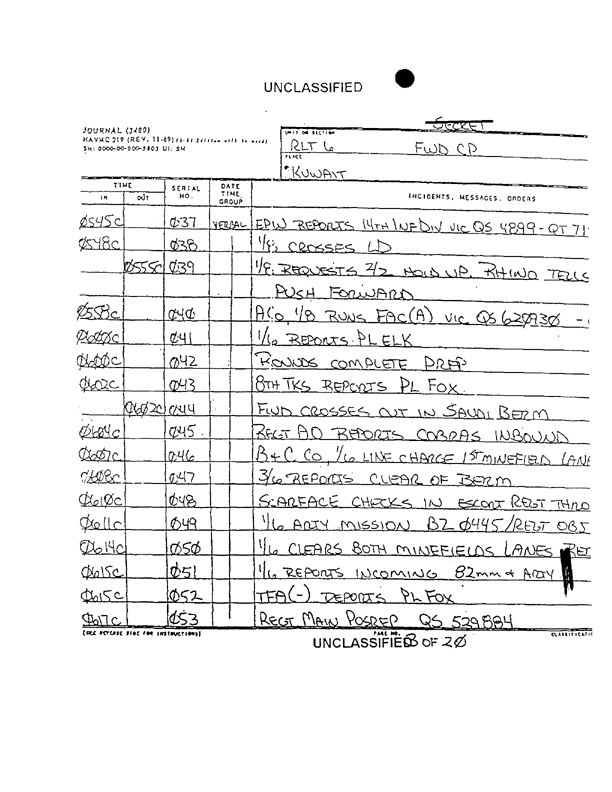 UNCLASSIFIED
SECRET
JOURNAL (3480)
UNIT OR SECTION
RLT 6 FWD CP
PLACE
KUWAIT
TIME
IN OUT SERIAL NO. DATE TIME GROUP INCIDENTS, MESSAGES, ORDERS
Ø545C Ø37 VERBAL EPW REPORTS 14TH INF DIV VIC QS 4899 - QT 71
Ø548C Ø38 1/8; CROSSES LD
Ø555C Ø39 1/8; REQUESTS 2/2 HOLD UP. RHINO TELLS
PUSH FORWARD
Ø558C Ø4Ø A CO, 1/8 RUNS FAC(A) VIC QS 620930 -
Ø6ØØC Ø41 1/6 REPORTS PL ELK
Ø6ØØC Ø42 ROUNDS COMPLETE PREP
Ø6Ø2C Ø43 8TH TKS REPORTS PL FOX
Ø6Ø2C Ø44 FWD CROSSES CUT IN SAUDI BERM
Ø6Ø4C Ø45 REGT AO REPORTS COBRAS INBOUND
Ø6Ø7C Ø46 B + C CO, 1/6 LINE CHARGE 1ST MINEFIELD LAN
Ø6Ø8C Ø47 3/6 REPORTS CLEAR OF BERM
Ø61ØC Ø48 SCARFACE CHECKS IN ESCORT REGT THRO
Ø611C Ø49 1/6 ARTY MISSION BZ Ø445/REGT OBJ
Ø614C Ø5Ø 1/6 CLEARS BOTH MINEFIELDS LANES
Ø615C Ø51 1/6 REPORTS INCOMING 82mm + ARTY
Ø615C Ø52 TFA(-) REPORTS PL FOX
Ø617C Ø53 REGT MAIN POSREP QS 529884
(SEE REVERSE SIDE FOR INSTRUCTIONS) PAGE NO. CLASSIFICATI
UNCLASSIFIED OF 2Ø